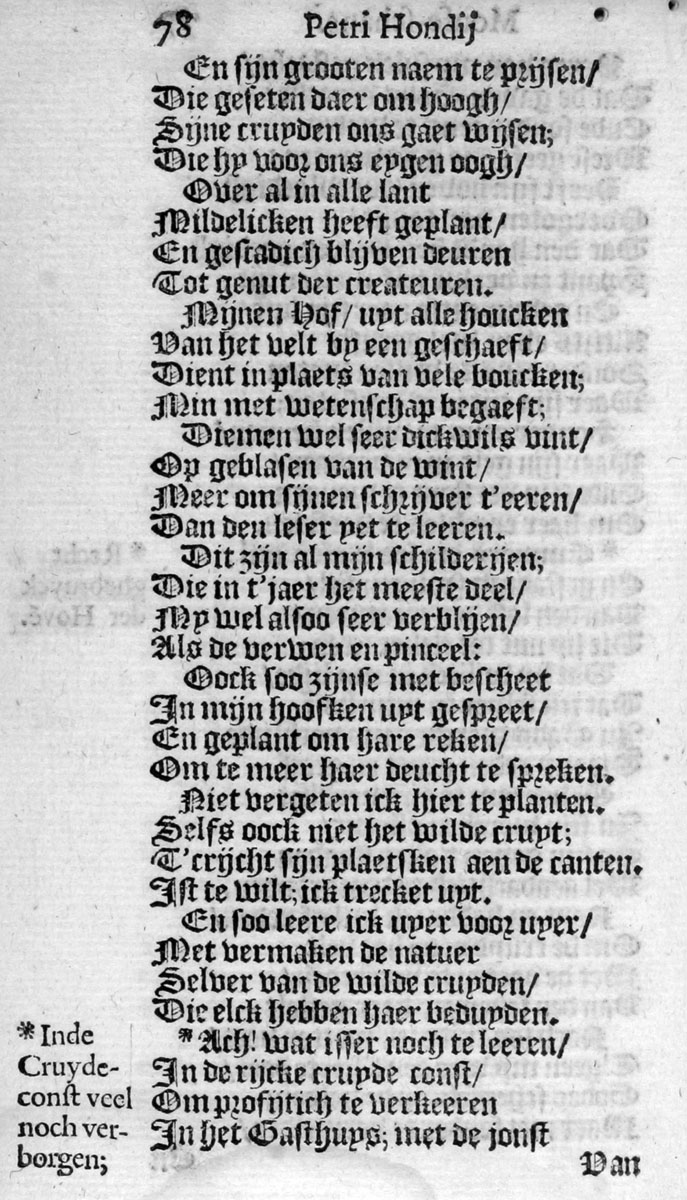 78 Petri Hondij
En sijn grooten naem te prijsen/
Die geseten daer om hoogh/
Sijne cruyden ons gaet wijsen;
Die hy voor ons eygen oogh/
Over al in alle lant
Mildelicken heeft geplant/
En gestadich blijven deuren
Tot genut der createuren.
Mijnen Hof/ uyt alle houcken
Van het velt by een geschaeft/
Dient in plaets van vele boucken;
Min met wetenschap begaeft;
Diemen wel seer dickwils vint/
Op geblasen van de wint/
Meer om sijnen schrijver t'eeren/
Dan den leser yet te leeren.
Dit zijn al mijn schilderijen;
Die in t'jaer het meeste deel/
My wel alsoo seer verblijen/
Als de verwen en pinceel:
Oock soo zijnse met bescheet
In mijn hoofken uyt gespreet/
En geplant om hare reken/
Om te meer haer deucht te spreken.
Niet vergeten ick hier te planten.
Selfs oock niet het wilde cruyt;
T'crijcht sijn plaetsken aen de canten.
Ist te wilt; ick trecket uyt.
En soo leere ick uyer voor uyer/
Met vermaken de natuer
Selver van de wilde cruyden/
Die elck hebben haer beduyden.
* Ach! wat isser noch te leeren/
In de rijcke cruyde const/
Om profijtich te verkeeren
In het Gasthuys; met de jonst
Van
* Inde
Cruyde-
const veel
noch ver-
borgen;